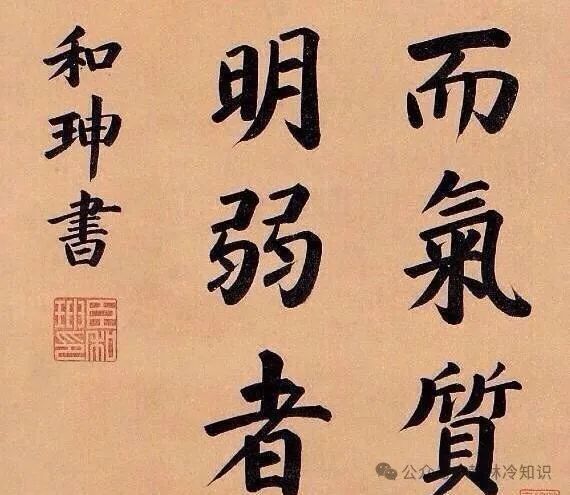 而氣質
明弱者
和珅書
臣和珅印
公众 林冷知识